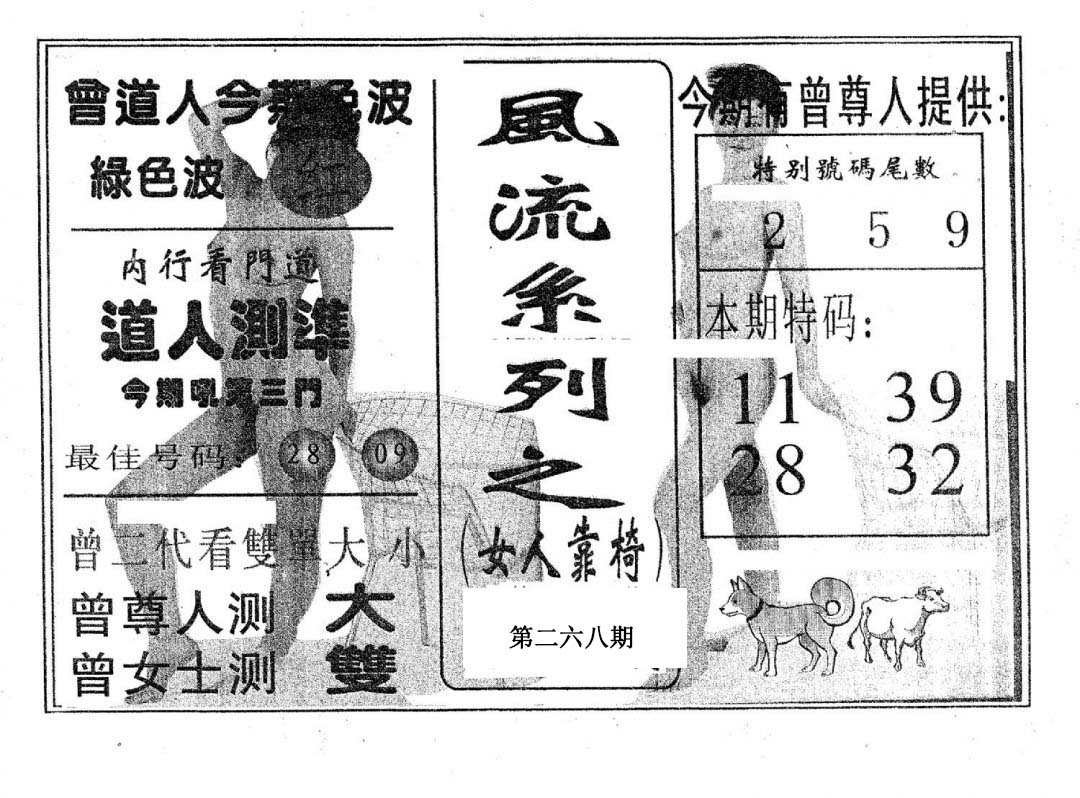 曾道人今期色波
綠色波 红
內行看門道
道人測準
今期吼第三門
最佳号码: 28 09
曾二代看雙單大小
曾尊人测 大
曾女士测 雙
風流系列之
(女人靠椅)
第二六八期
今期有曾尊人提供:
特别號碼尾數
2 5 9
本期特码:
11 39
28 32